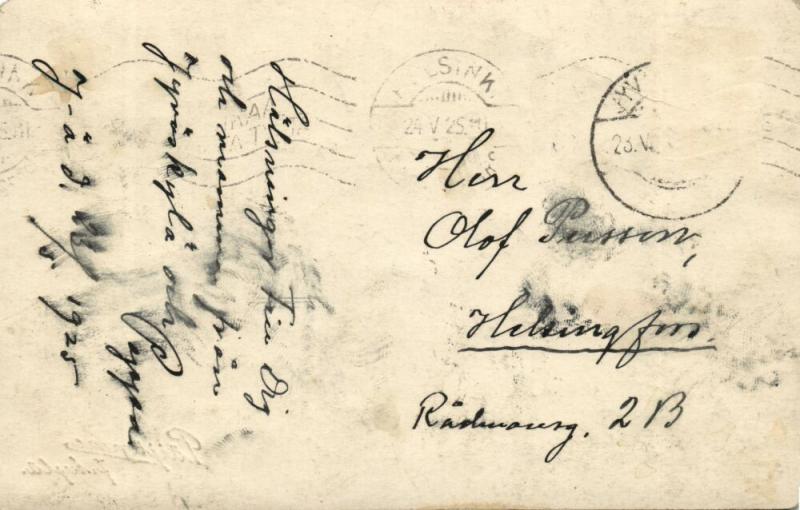 Hälsningar till Dig
och mamma från
Jyväskylä och
Pappa
J-ä d. 23/5. 1925
HELSINKI
24.V.25.
23.V.
Herr
Olof Persson,
Helsingfors.
Rådmansg. 2 B